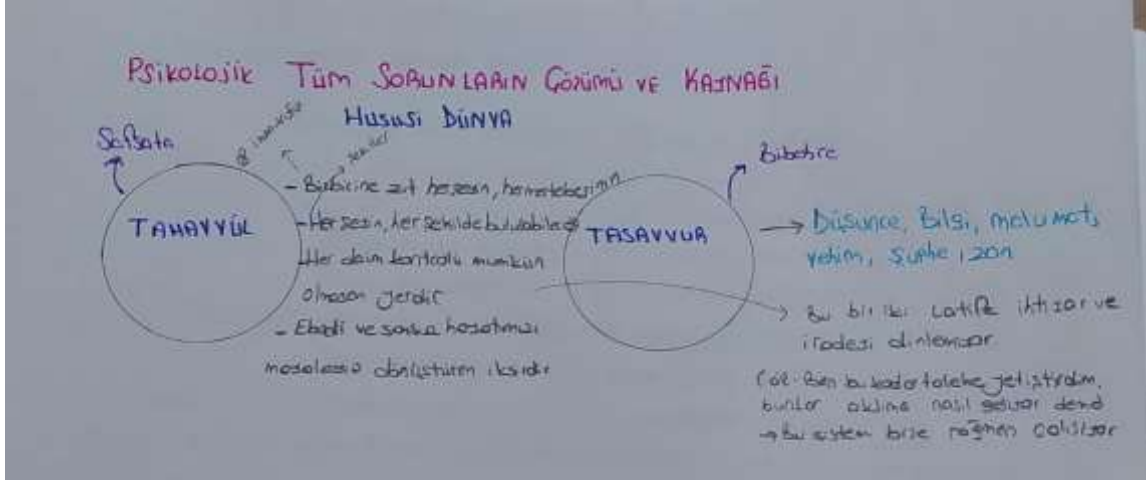 PSİKOLOJİK TÜM SORUNLARIN ÇÖZÜMÜ VE KAYNAĞI
HUSUSİ DÜNYA
Safsata
TAHAYYÜL
- Birbirine zıt herşeyin,
- Her şeyin, her şekilde bulunabileceği
- Her daim kontrolü mümkün
olmayan yerdir
- Ebedi ve sonlu
dönüştüren iksirdir
TASAVVUR
Bibehre
→ Düşünce, Bilgi, malumat,
vehim, şüphe, zan
→ Bu bir iki Latife ihtiyar ve
iradeyi dinlemiyor
Ben bu kadar talebe yetiştirdim,
bunlar aklıma nasıl geliyor
→ Bu sistem bize rağmen çalışıyor